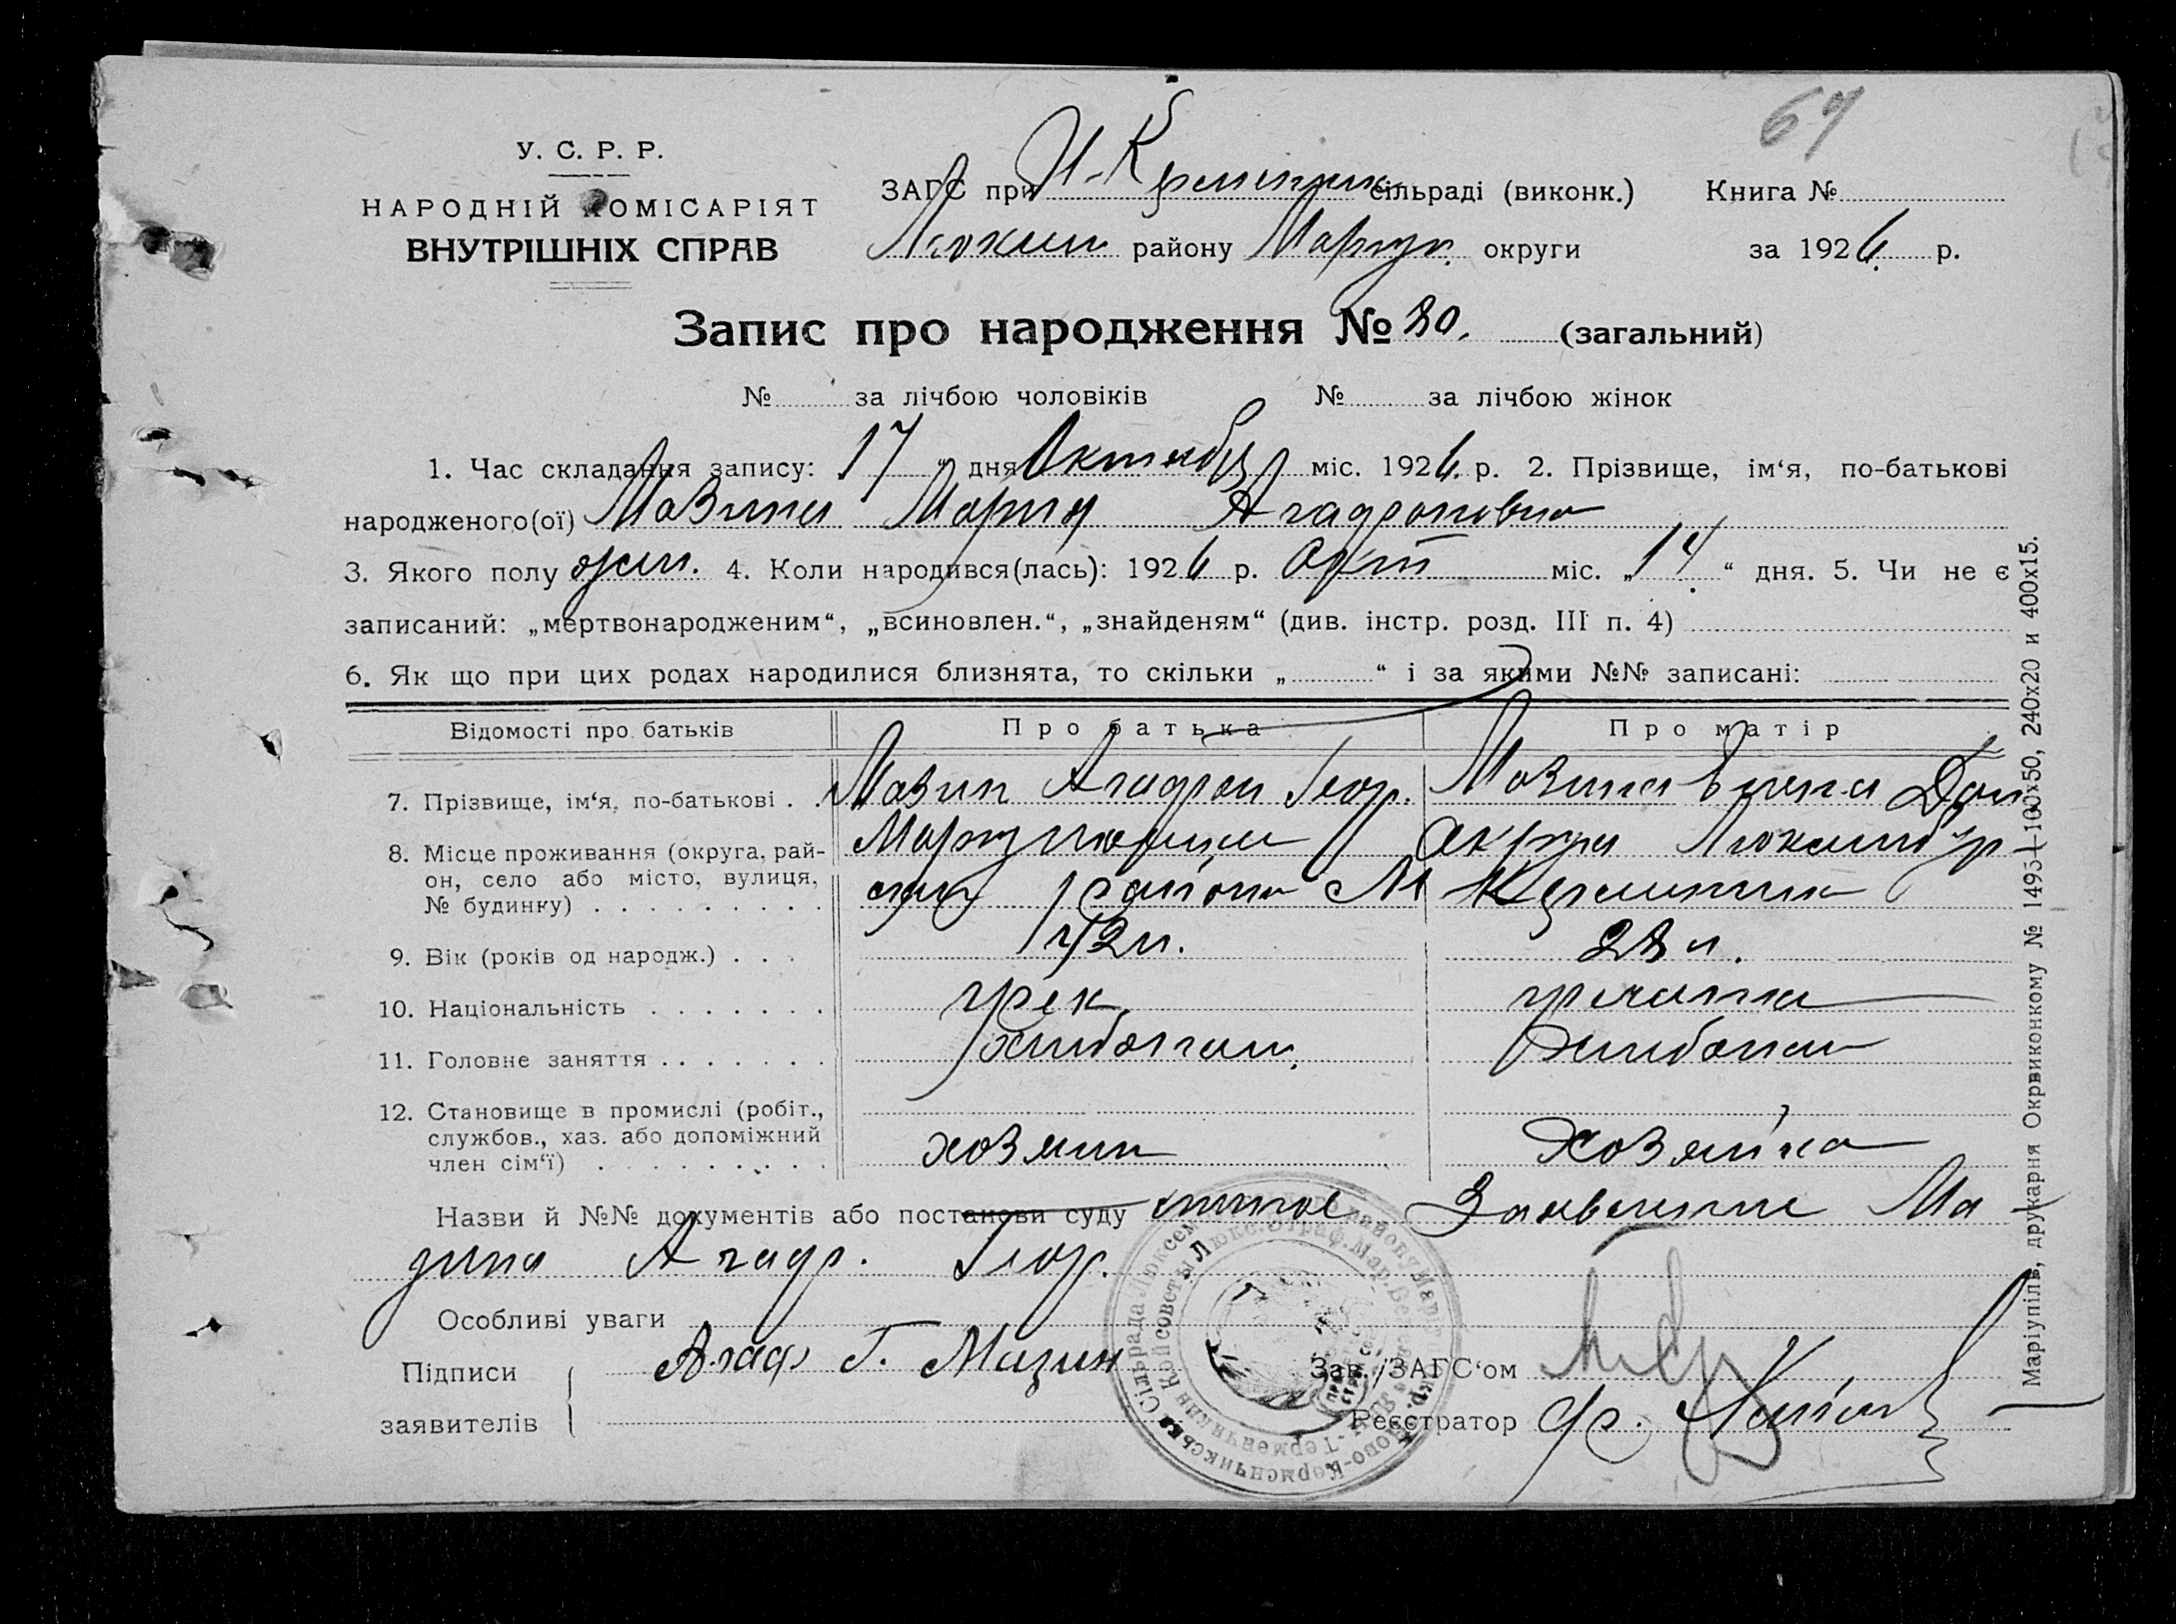 67
У. С. Р. Р.
НАРОДНІЙ КОМІСАРІЯТ
ВНУТРІШНІХ СПРАВ
ЗАГС при сільраді (виконк.) Книга №
району Мариуп. округи за 1926 р.
Запис про народження № 80. (загальний)
№ за лічбою чоловіків № за лічбою жінок
1. Час складання запису: 17 “ дня Октября міс. 1926 р. 2. Прізвище, ім‘я, по-батькові
народженого(ої) Мазина Мария Агафоновна
3. Якого полу жен. 4. Коли народився(лась): 1926 р. Окт міс. „14“ дня. 5. Чи не є
записаний: „мертвонародженим“, „всиновлен.“, „знайденям“ (див. інстр. розд. III п. 4)
6. Як що при цих родах народилися близнята, то скільки „ “ і за якими №№ записані:
Відомості про батьків Про батька Про матір
7. Прізвище, ім‘я, по-батькові . . Мазин Агафон Геор. Мазина
8. Місце проживання (округа, рай-
он, село або місто, вулиця,
№ будинку) района
9. Вік (років од народж.) . . . 42 л. 28 л.
10. Національність грек гречанка
11. Головне заняття хлебопаш. хлебопаш
12. Становище в промислі (робіт.,
службов., хаз. або допоміжний
член сім‘ї) хозяин хозяйка
Назви й №№ документів або постанови суду личное Заявление Ма
зина Агаф. Геор.
Особливі уваги
Підписи Агаф Г. Мазин Зав. ЗАГС‘ом
заявителів Реєстратор
Маріупіль, друкарня Окрвиконкому № 1495—100x50, 240x20 и 400x15.